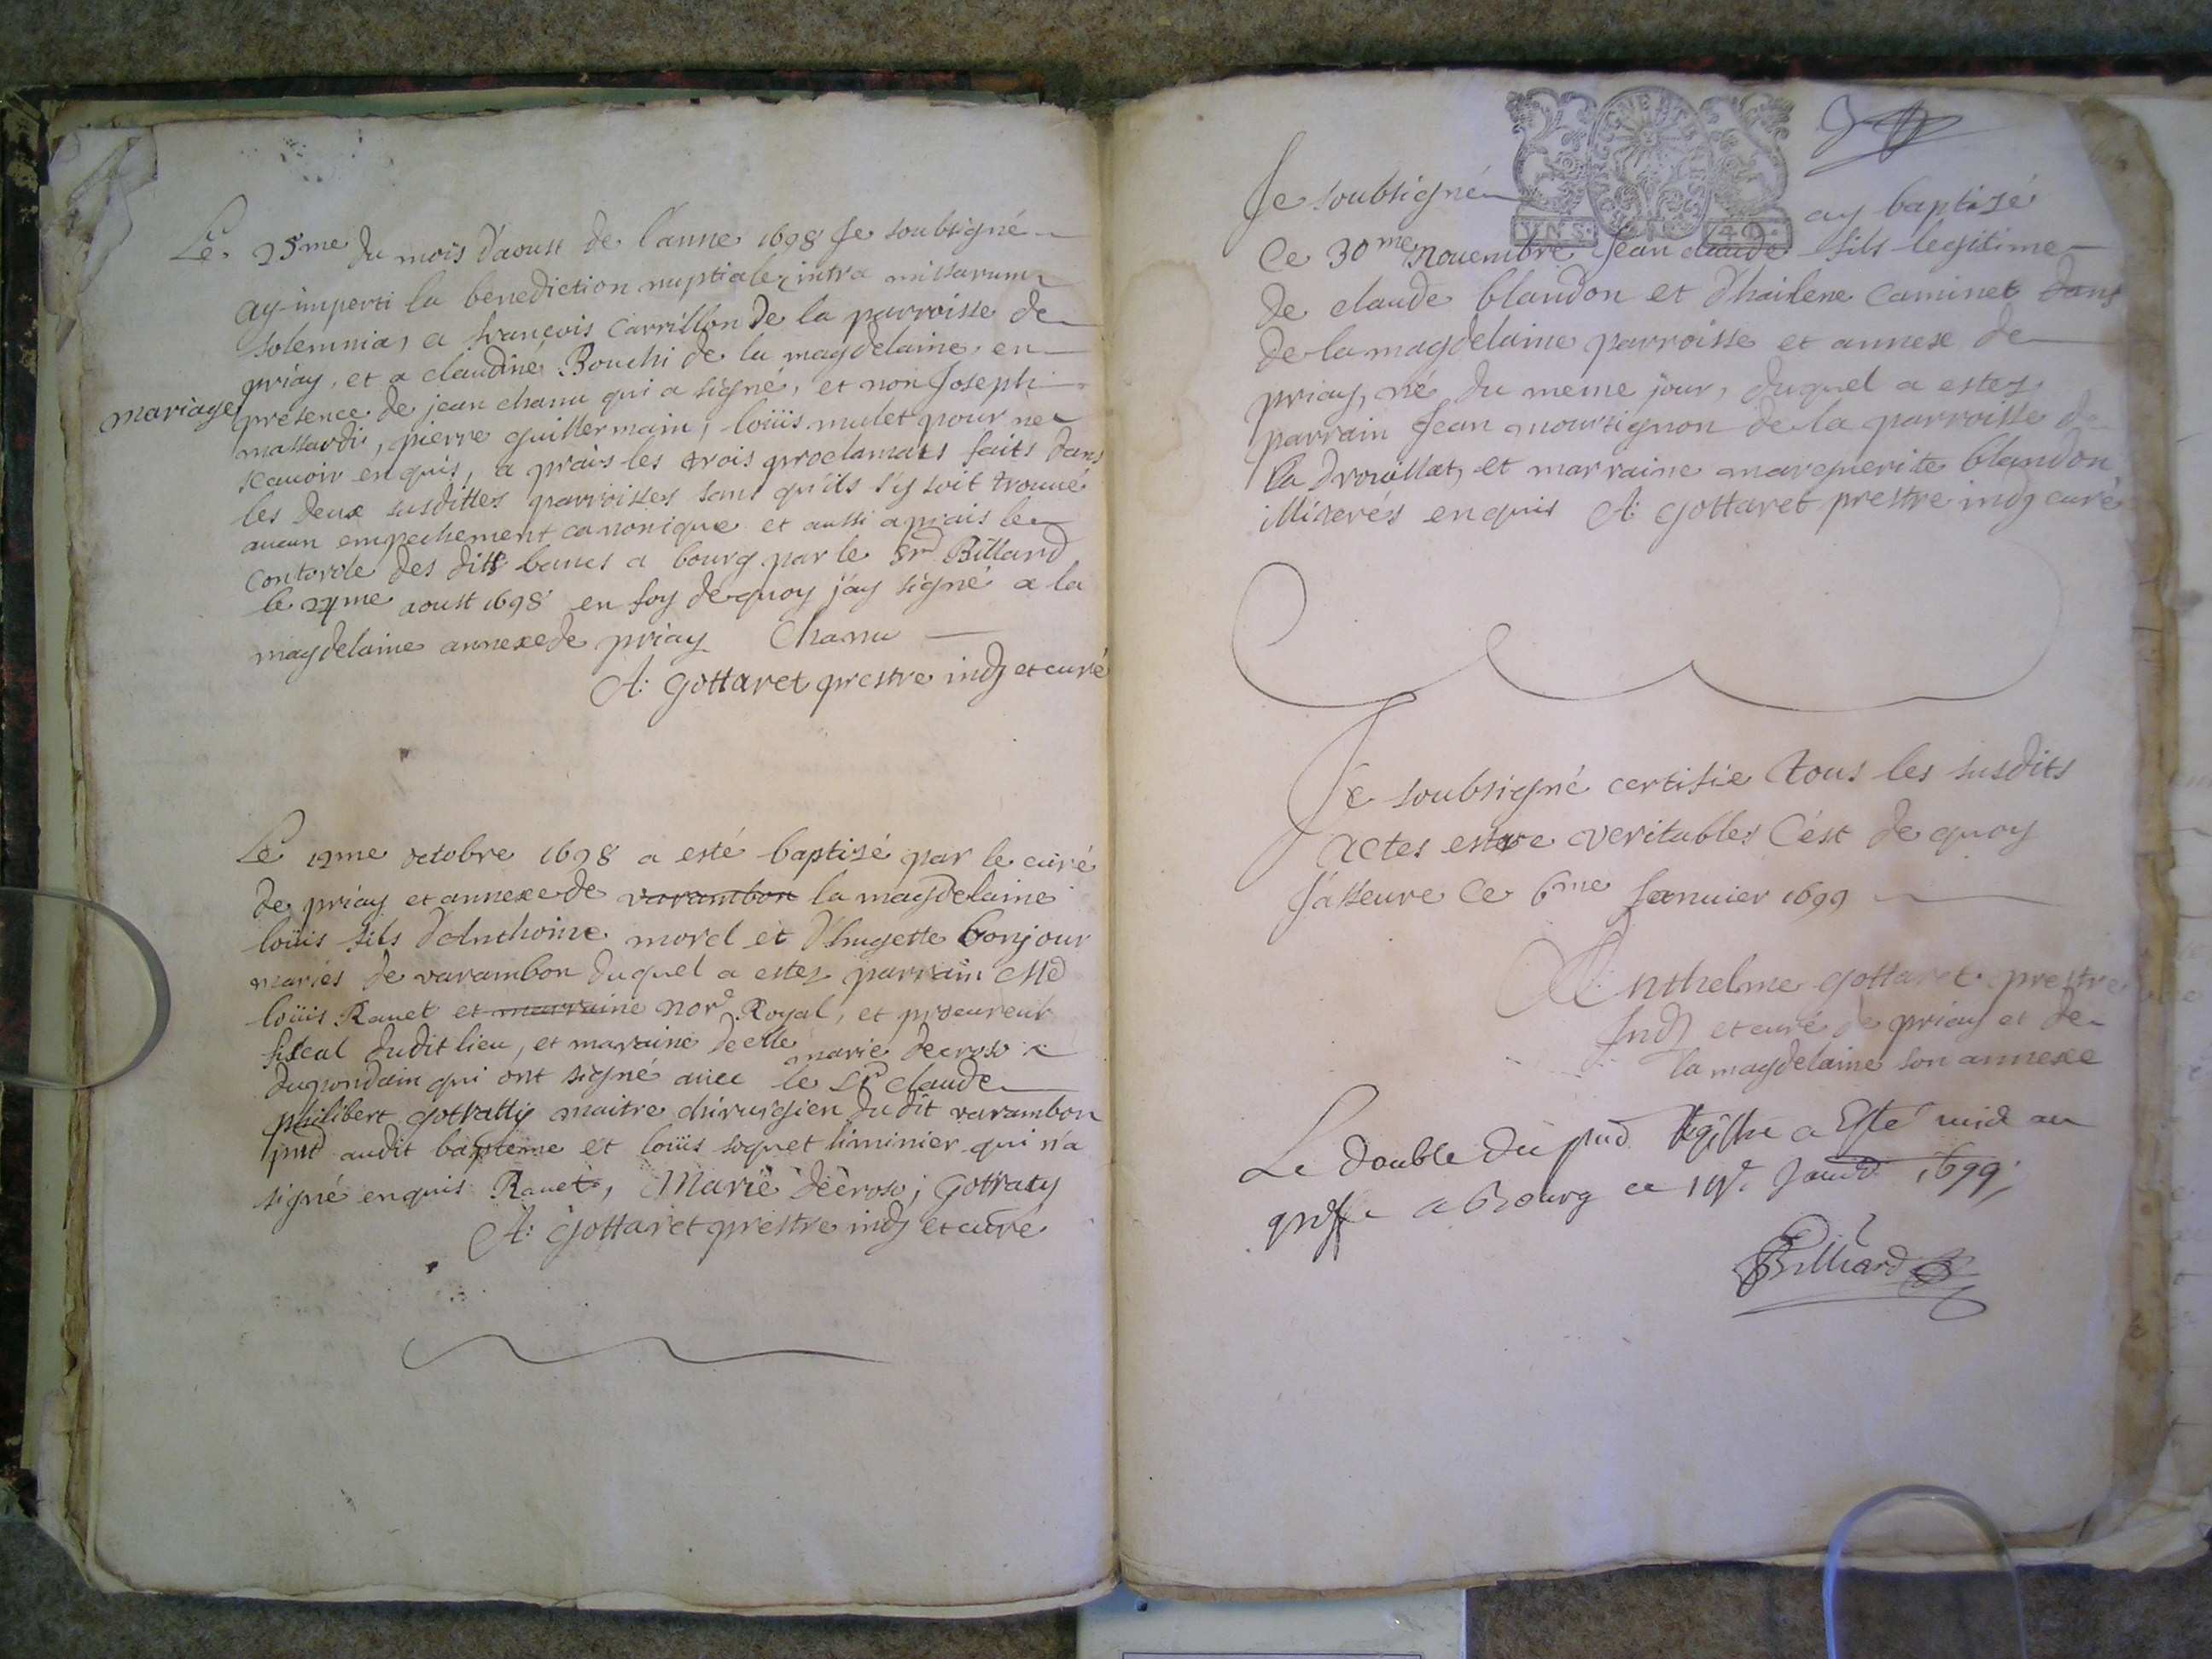 Le 25me du mois d'aoust de l'anne 1698 Je soubsigné
ay imperti la benediction nuptiale intra missarum
solemnia, a françois Carrillon de la parroisse de
priay, et a claudine Bouchi de la magdelaine, en
mariage
presence de jean chanu qui a signé, et non Joseph
massardi, pierre guillermain, loüis mulet pour ne
scauoir enquis, a prais les trois proclamats faits dans
les deux susdittes parroisses sans qu'ils s'y soit trouué
aucun empechement canonique et aussi aprais le
contorole des dits bancs a bourg par le Sr Billard
le 24me aoust 1698 en foy dequoy j'ay signé a la
magdelaine annexe de priay Chanu
A: Gottaret prestre indg et curé
Le 12me octobre 1698 a esté baptisé par le curé
de priay et annexe de varambon la magdelaine
loüis fils d'Anthoine morel et d'hugette bonjour
mariés de varambon duquel a estez parrain Me
loüis Rauet et marraine nore Royal, et procureur
fiscal dudit lieu, et maraine delle marie decroso
dupondain qui ont signé auec le Sr claude
philibert gottraty maitre chirurgien du dit varambon
pnt audit bapteme et loüis soquet liminier qui n'a
signé enquis Rauet, Marie decroso, Gottraty
A: Gottaret prestre indg et curé
VNS 4D
Je soubsigné ay baptisé
Ce 30me Nouembre Jean claude fils legitime
de claude blandon et d'hailene Caminet dans
de la magdelaine parroisse et annexe de
priay, né du meme jour, duquel a estez
parrain Jean mourtignon de la parroisse de
la Drouillat, et marraine marguerite blandon
illiterés enquis A: Gottaret prestre indg curé
Je soubsigné certifie tous les susdits
actes estre veritables C'est de quoy
J'asseure Ce 6me Januier 1699
Anthelme gottaret prestre
Indg et curé de priay et de
la magdelaine son annexe
Le double du pnd Registre a Esté mid au
greffe a Bourg ce Janud 1699
Billiard